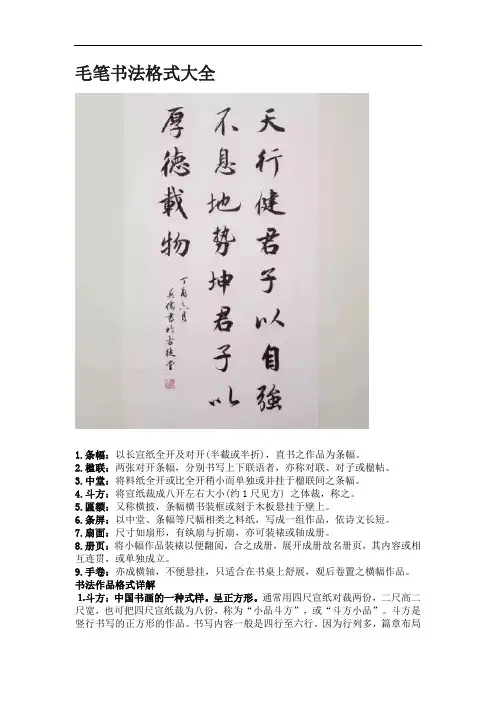 毛笔书法格式大全
天行健君子以自強
不息地势坤君子以
厚德載物
1.条幅：以长宣纸全开及对开(半截或半折)，直书之作品为条幅。
2.楹联：两张对开条幅，分别书写上下联语者，亦称对联、对子或楹帖。
3.中堂：将料纸全开或比全开稍小而单独或并挂于楹联间之条幅。
4.斗方：将宣纸裁成八开左右大小(约1尺见方) 之体裁，称之。
5.匾额：又称横披，条幅横书装框或刻于木板悬挂于壁上。
6.条屏：以中堂、条幅等尺幅相类之料纸，写成一组作品，依诗文长短。
7.扇面：尺寸如扇形，有纨扇与折扇，亦可装裱或轴成册。
8.册页：将小幅作品装裱以便翻阅，合之成册，展开成册故名册页，其内容或相
互连贯，或单独成立。
9.手卷：亦成横轴，不便悬挂，只适合在书桌上舒展，观后卷置之横幅作品。
书法作品格式详解
1.斗方：中国书画的一种式样。呈正方形。通常用四尺宣纸对裁两份，二尺高二
尺宽，也可把四尺宣纸裁为八份，称为“小品斗方”，或“斗方小品”。斗方是
竖行书写的正方形的作品。书写内容一般是四行至六行。因为行列多，篇章布局